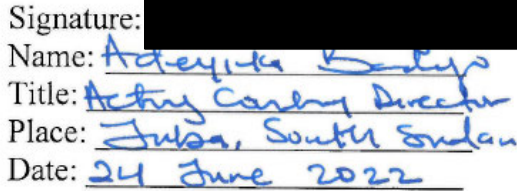 Signature:
Name: Adeyinka Badejo
Title: Acting Country Director
Place: Juba, South Sudan
Date: 24 June 2022